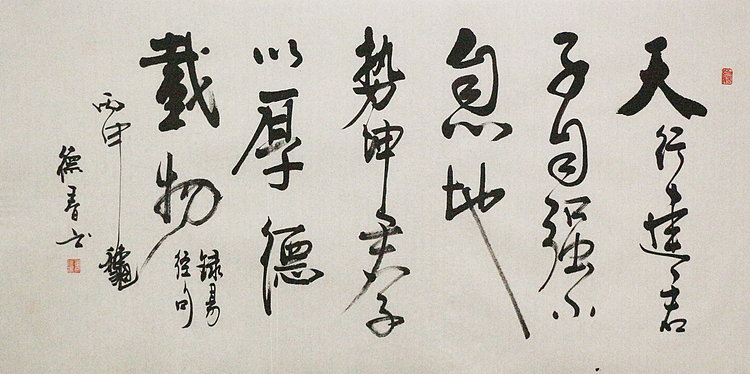 天行健君
子自强不
息地
势坤君子
以厚德
載物
録易
経句
丙申龝
德春书